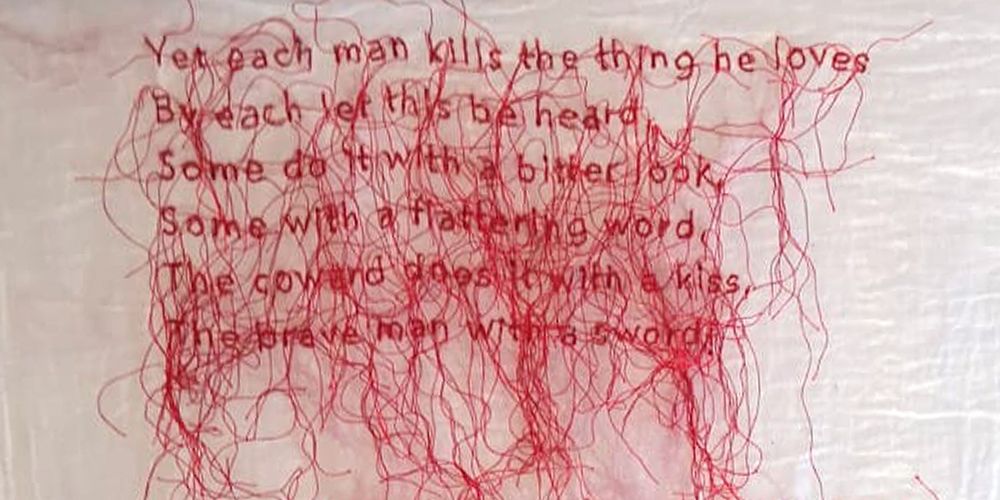 Yet each man kills the thing he loves
By each let this be heard,
Some do it with a bitter look,
Some with a flattering word,
The coward does it with a kiss,
The brave man with a sword!